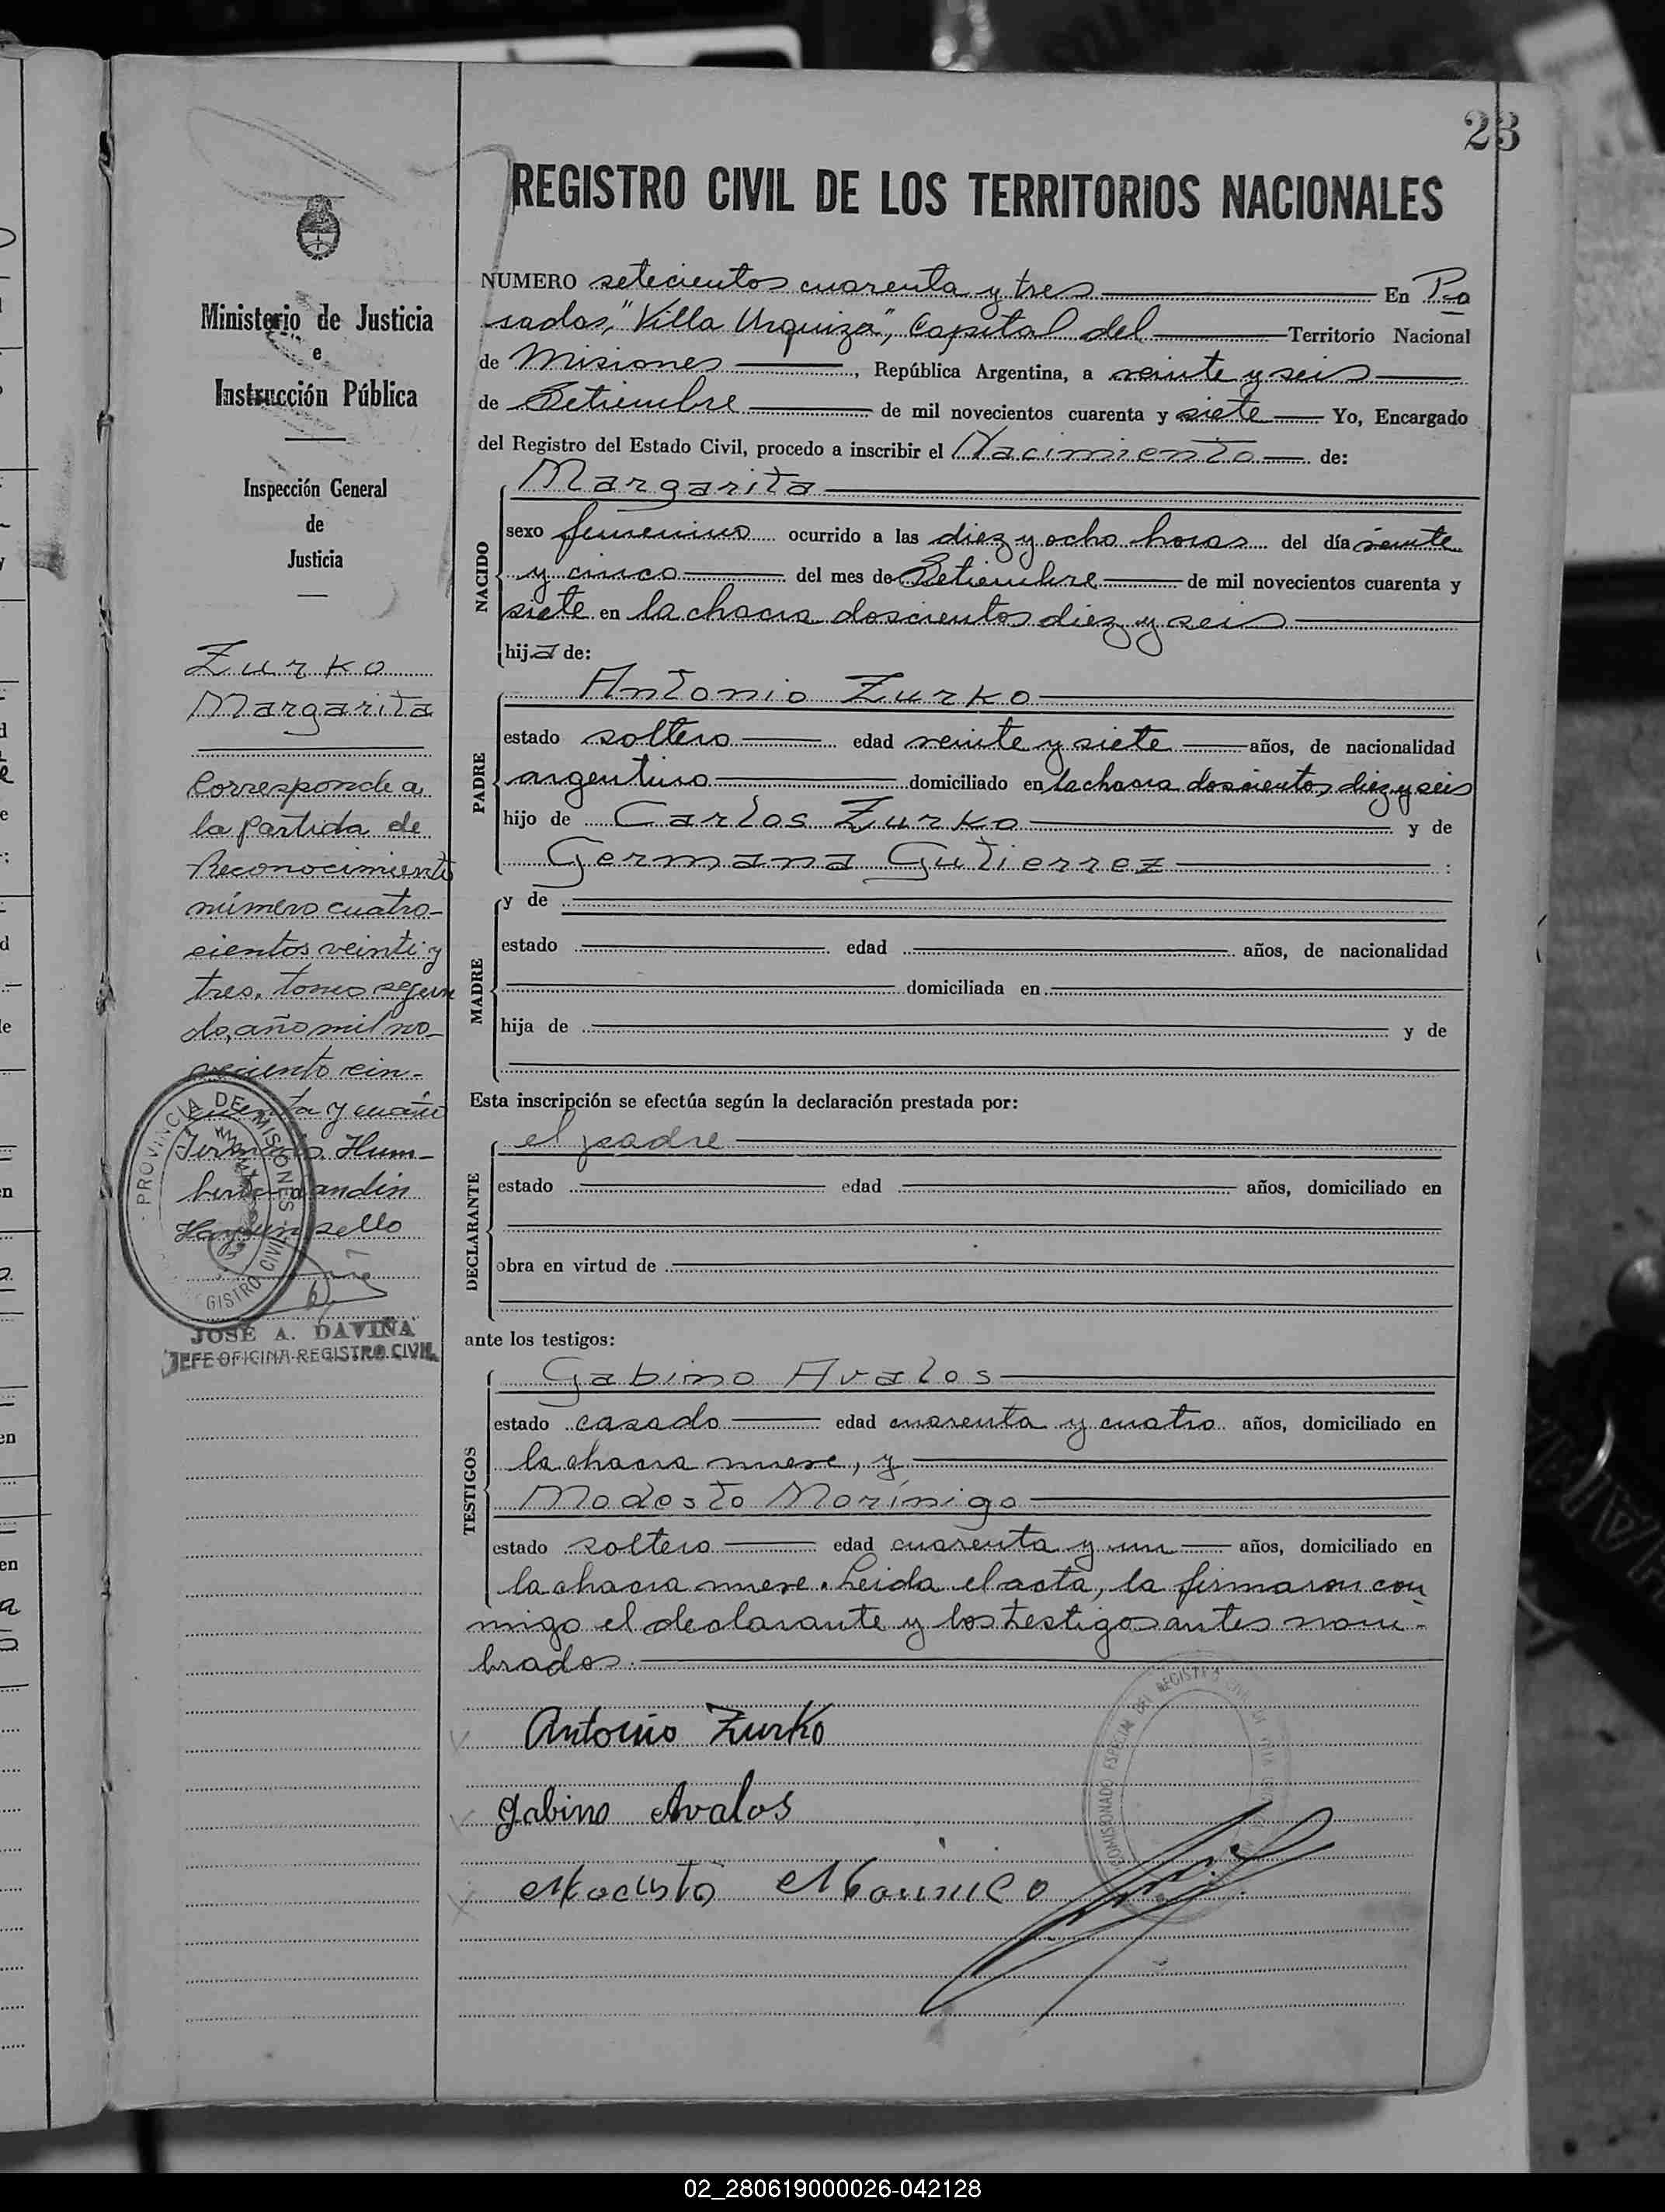 23
REGISTRO CIVIL DE LOS TERRITORIOS NACIONALES
Ministerio de Justicia
e
Instrucción Pública
Inspección General
de
Justicia
Zurko
Margarita
Corresponde a
la partida de
Reconocimiento
número cuatro-
cientos veinti y
tres, tomo segun
do, año mil no-
veciento cin-
cuenta y cuatro
Hum-
sello
PROVINCIA DE MISIONES
REGISTRO CIVIL
JOSE A. DAVIÑA
JEFE OFICINA REGISTRO CIVIL
NUMERO setecientos cuarenta y tres En Po
sadas, "Villa Urquiza", Capital del Territorio Nacional
de Misiones, República Argentina, a veinte y seis
de Setiembre de mil novecientos cuarenta y siete Yo, Encargado
del Registro del Estado Civil, procedo a inscribir el Nacimiento de:
NACIDO
Margarita
sexo femenino ocurrido a las diez y ocho horas del día veinte
y cinco del mes de Setiembre de mil novecientos cuarenta y
siete en la chacra doscientos diez y seis
hija de:
PADRE
Antonio Zurko
estado soltero edad veinte y siete años, de nacionalidad
argentino domiciliado en la chacra doscientos diez y seis
hijo de Carlos Zurko y de
Germana Gutierrez :
MADRE
y de
estado edad años, de nacionalidad
domiciliada en
hija de y de
Esta inscripción se efectúa según la declaración prestada por:
DECLARANTE
el padre
estado edad años, domiciliado en
obra en virtud de
ante los testigos:
TESTIGOS
Gabino Avalos
estado casado edad cuarenta y cuatro años, domiciliado en
la chacra nueve, y
Modesto Morínigo
estado soltero edad cuarenta y un años, domiciliado en
la chacra nueve. Leida el acta, la firmaron con
migo el declarante y los testigos antes nom-
brados.
Antonio Zurko
Gabino Avalos
COMISIONADO ESPECIAL DEL REGISTRO CIVIL
02_280619000026-042128